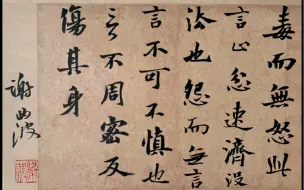 毒而無怒此
言止忿速濟没
法也怨而無言
言不可不慎也
言不周密反
傷其身
謝 波